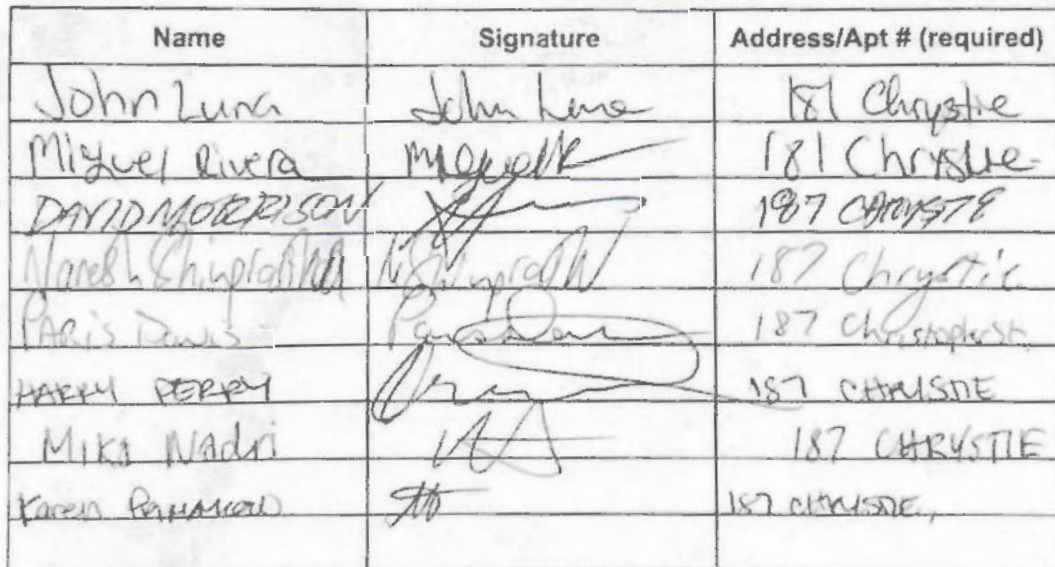 Name Signature Address/Apt # (required)
John Luna John Luna 181 Chrystie
Miguel Rivera Miguel R 181 Chrystie
DAVID MORRISON 187 CHRYSTE
Naresh 187 Chrystie
PARis Davis Paris Davis 187 Christopher St.
HARRY PERRY 187 CHRYSTIE
Mika Nadri 187 CHRYSTIE
Karen 187 CHRYSTIE,